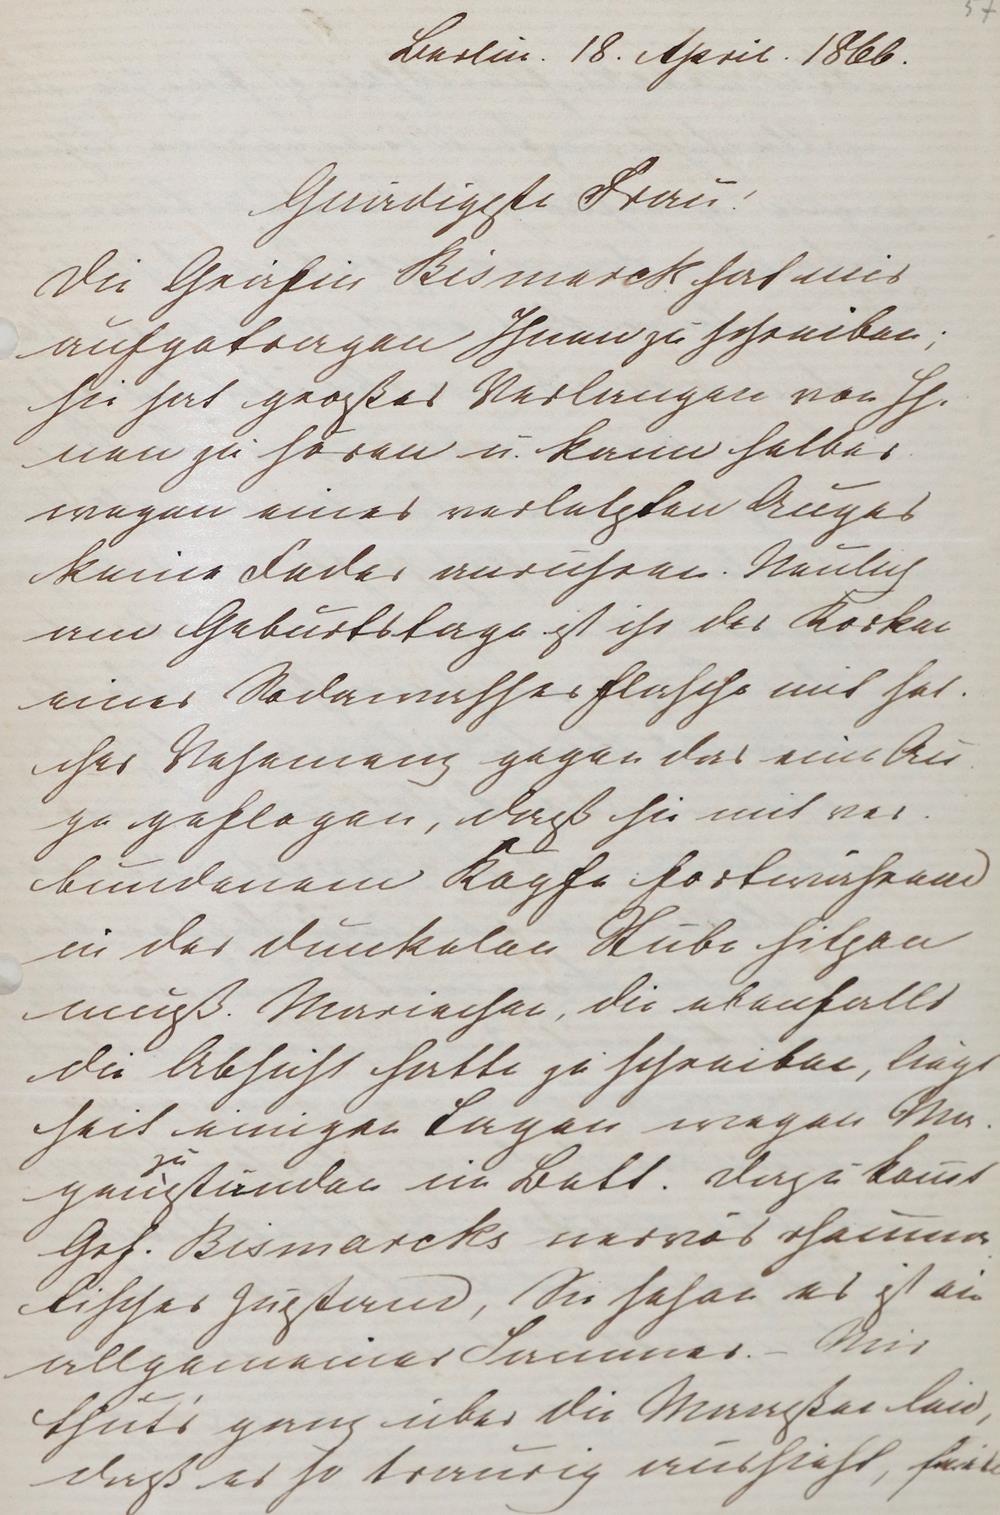 57
Berlin. 18. April. 1866.
Gnädigste Frau!
Die Gräfin Bismarck hat mir
aufgetragen Ihnen zu schreiben;
sie hat großes Verlangen von Ih-
nen zu hören u. kann selber
wegen eines verletzten Auges
keine Feder anrühren. Neulich
am Geburtstage ist ihr der Korken
einer Sodawasserflasche mit sol-
cher Vehemenz gegen das eine Au-
ge geflogen, daß sie mit ver-
bundenem Kopfe fortwährend
in der dunkelen Stube sitzen
muß. Mariechen, die ebenfalls
die Absicht hatte zu schreiben, liegt
seit einigen Tagen wegen Ma-
genzustünden im Bett. Dazu kommt
Grf. Bismarcks nervös rheuma-
tischer Zustand, Sie sehen es ist ein
allgemeiner Jammer. – Mir
thut's ganz über die Maaßen leid,
daß es so traurig aussieht, für